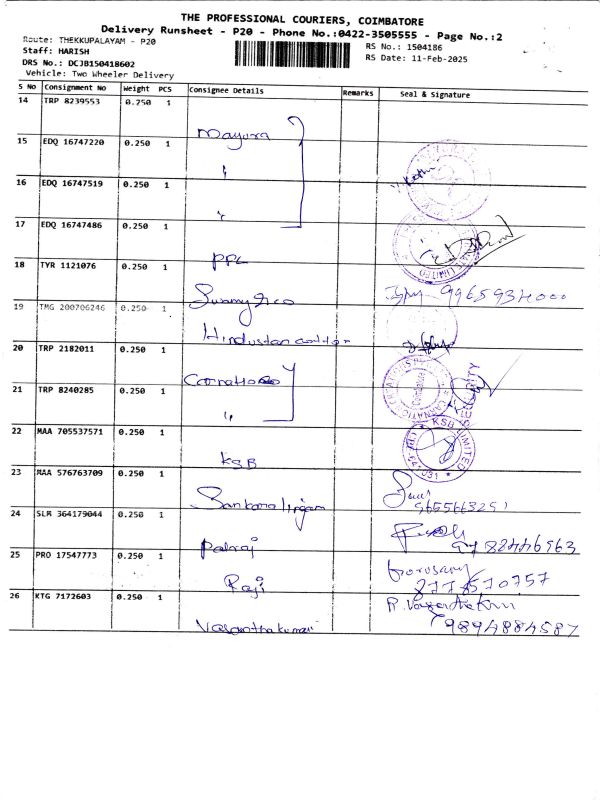 THE PROFESSIONAL COURIERS, COIMBATORE
Delivery Runsheet - P20 - Phone No.:0422-3505555 - Page No.:2
Route: THEKKUPALAYAM - P20
RS No.: 1504186
Staff: HARISH
RS Date: 11-Feb-2025
DRS No.: DCJB150418602
Vehicle: Two Wheeler Delivery
S No Consignment No Weight PCS Consignee Details Remarks Seal & Signature
14 TRP 8239553 0.250 1
Mayura
15 EDQ 16747220 0.250 1
"
16 EDQ 16747519 0.250 1
"
17 EDQ 16747486 0.250 1
PPL
18 TYR 1121076 0.250 1
Swamy & co 9965934000
19 TMG 200706246 0.250 1
Hindustan
20 TRP 2182011 0.250 1
21 TRP 8240285 0.250 1
"
SECURITY
22 MAA 705537571 0.250 1
KSB LIMITED
KSB
23 MAA 576763709 0.250 1
Sankaralingam
24 SLM 364179044 0.250 1
Palraj
25 PRO 17547773 0.250 1
Raji
26 KTG 7172603 0.250 1
Vasanthakumari 9894884587